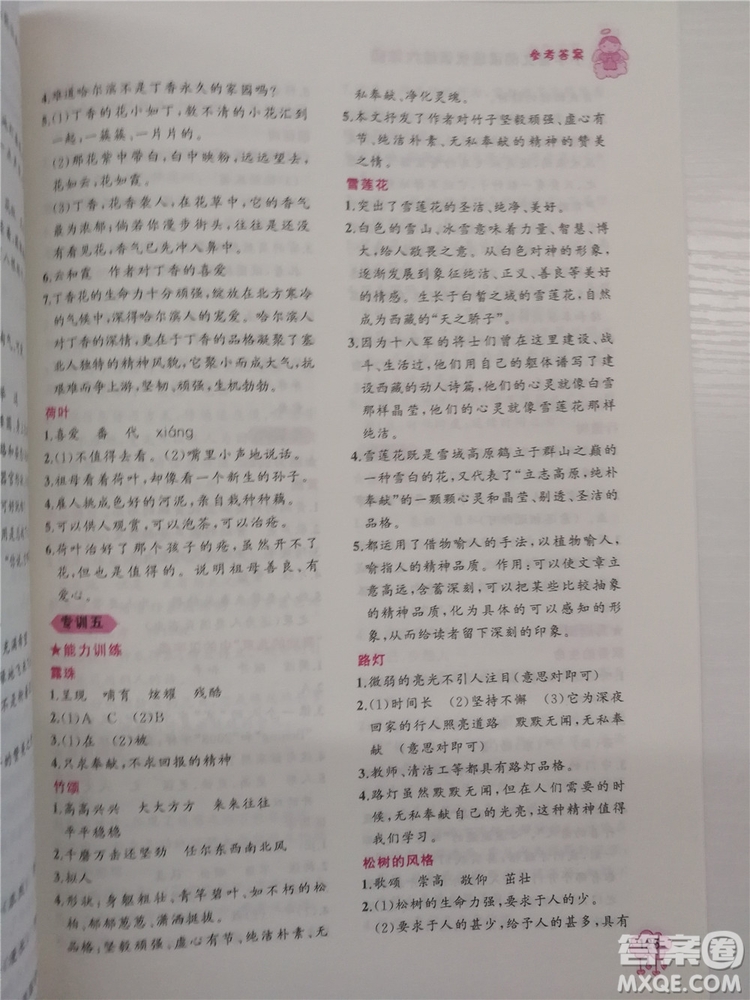 参考答案
4.难道哈尔滨不是丁香永久的家园吗?
5.(1)丁香的花小如丁,数不清的小花汇到
一起,一簇簇,一片片的。
(2)那花紫中带白,白中映粉,远远望去,
花如云,花如霞。
(3)丁香,花香袭人,在花草中,它的香气
最为浓郁。倘若你漫步街头,往往是还没
有看见花,香气已先冲入鼻中。
6.云和霞 作者对丁香的喜爱
7.丁香花的生命力十分顽强,绽放在北方寒冷
的气候中,深得哈尔滨人的宠爱。哈尔滨人
对丁香的深情,更在于丁香的品格凝聚了塞
北人独特的精神风貌:它展示了大气,抗
艰难而争上游,坚韧、顽强,生机勃勃。
荷叶
1.喜爱 番 代 xiáng
2.(1)不值得去看。(2)嘴里小声地说话。
3.祖母看着荷叶,却像看一个新生的孙子。
4.雇人挑成色好的河泥,亲自栽种种藕。
5.可以供人观赏,可以泡茶,可以治疮。
6.荷叶治好了那个孩子的疮,虽然开不了
花,但也是值得的。说明祖母善良、有
爱心。
专训五
★能力训练
露珠
1.呈现 哺育 炫耀 残酷
2.(1)A C (2)B
3.(1)在 (2)被
4.只求奉献,不求回报的精神
竹颂
1.高高兴兴 大大方方 来来往往
平平稳稳
2.千磨万击还坚劲 任尔东西南北风
3.拟人
4.形状:身躯粗壮、青竿碧叶、如不朽的松
柏、郁郁葱葱、潇洒挺拔。
品格:坚毅顽强、虚心有节、纯洁朴素、无
私奉献、净化灵魂。
5.本文抒发了作者对竹子坚毅顽强、虚心有
节、纯洁朴素、无私奉献的精神的赞美
之情。
雪莲花
1.突出了雪莲花的圣洁、纯净、美好。
2.白色的雪山、冰雪意味着力量、智慧、博
大,给人敬畏之意。从白色对神的形象,
逐渐发展到象征纯洁、正义、善良等美好
的情感。生长于白皙之域的雪莲花,当然
成为西藏的“天之骄子”。
3.因为十八军的将士们曾在这里建设、战
斗、生活过,他们用自己的躯体谱写了建
设西藏的动人诗篇,他们的心灵就像白雪
那样晶莹,他们的心灵就像雪莲花那样
纯洁。
4.雪莲花既是雪域高原鹤立于群山之巅的
一种雪白的花,又代表了“立志高原,纯朴
奉献”的一颗颗心灵和晶莹、剔透、圣洁的
品格。
5.都运用了借物喻人的手法,以植物喻人,
喻指人的精神品质。作用:可以使文章立
意高远,含蓄深刻,可以把某些比较抽象
的精神品质,化为具体的可以感知的形
象,从而给读者留下深刻的印象。
★
路灯
1.微弱的亮光不引人注目(意思对即可)
2.(1)时间长 (2)坚持不懈 (3)它在深夜
回家的行人照亮道路 默默无闻,无私奉
献 (意思对即可)
3.教师、清洁工等都具有路灯品格。
4.路灯虽然默默无闻,但在人们需要的时
候,无私奉献自己的光亮,这种精神值得
我们学习。
松树的风格
1.歌颂 崇高 敬仰 茁壮
2.(1)松树的生命力强,要求于人的少。
(2)要求于人的甚少,给予人的甚多,具有
答案圈
MXQE.COM